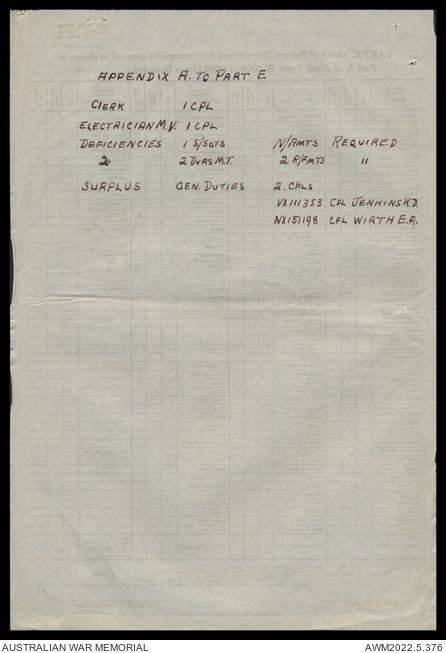 APPENDIX A. TO PART E
CLERK 1 CPL
ELECTRICIAN M.V. 1 CPL
DEFICIENCIES 1 S/SGTS N/RMTS REQUIRED
2 DVRS M.T. 2 R/FMTS "
SURPLUS GEN. DUTIES 2. CPLS
VX111353 CPL JENKINS K.D.
NX151198 CPL WIRTH E.A.
AUSTRALIAN WAR MEMORIAL AWM2022.5.376